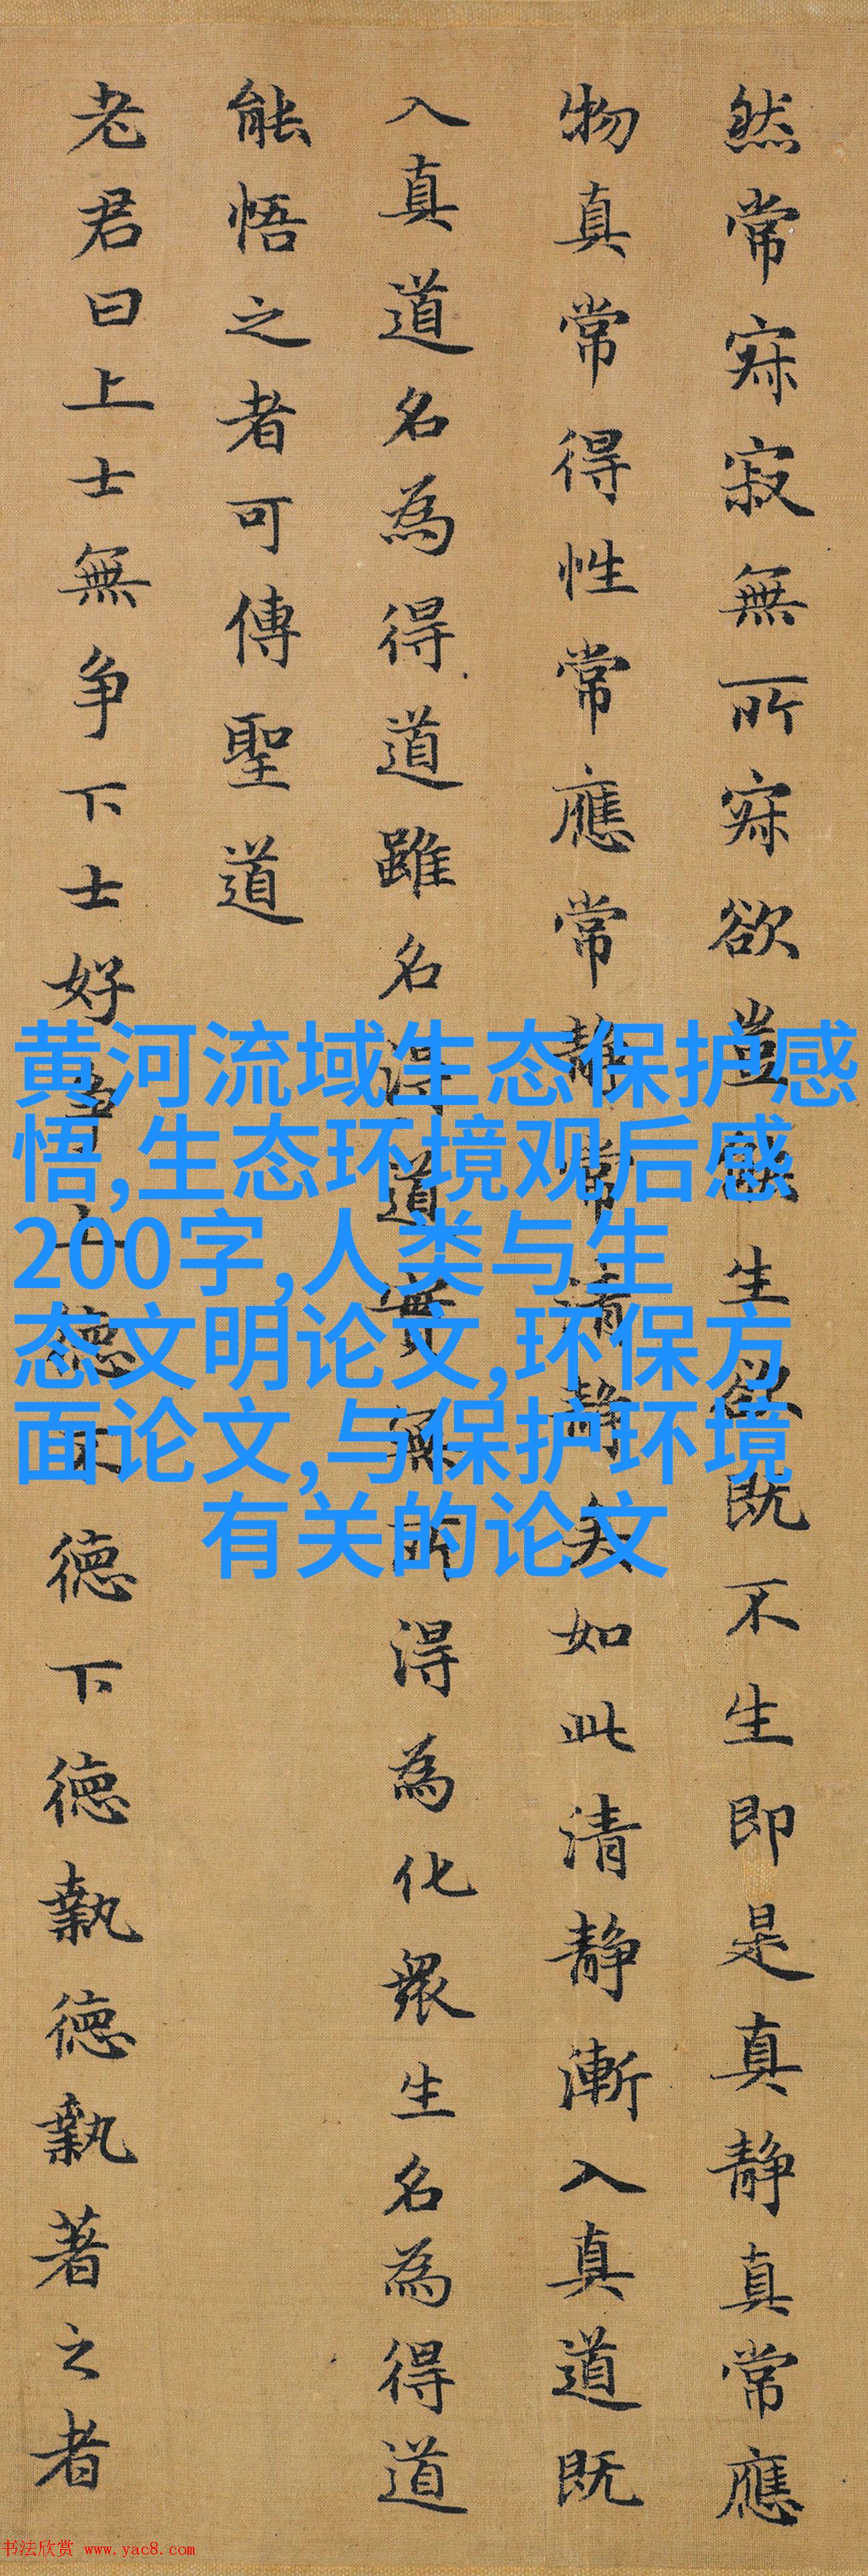 然常寂寂無所寂欲豈能生欲既不生即是真靜真常應
物真常得性常應常靜常清靜矣如此清靜漸入真道既
入真道名為得道雖名得道實無所得為化眾生名為得道
能悟之者可傳聖道
老君曰上士無争下士好争上士德不德下士執德執著之者
黄河流域生态保护感
悟,生态环境观后感
200字,人类与生
态文明论文,环保方
面论文,与保护环境
有关的论文
书法欣赏 www.yac8.com